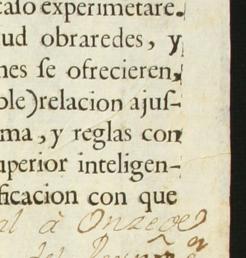 caso experimetare.
ud obraredes, y
nes se ofrecieren,
ole) relacion ajus-
ma, y reglas con
uperior inteligen-
ficacion con que
al à Onze de
del